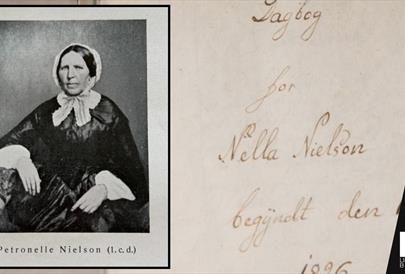 Petronelle Nielson (l. c. d.)
Dagbog
for
Nella Nielson
begyndt den